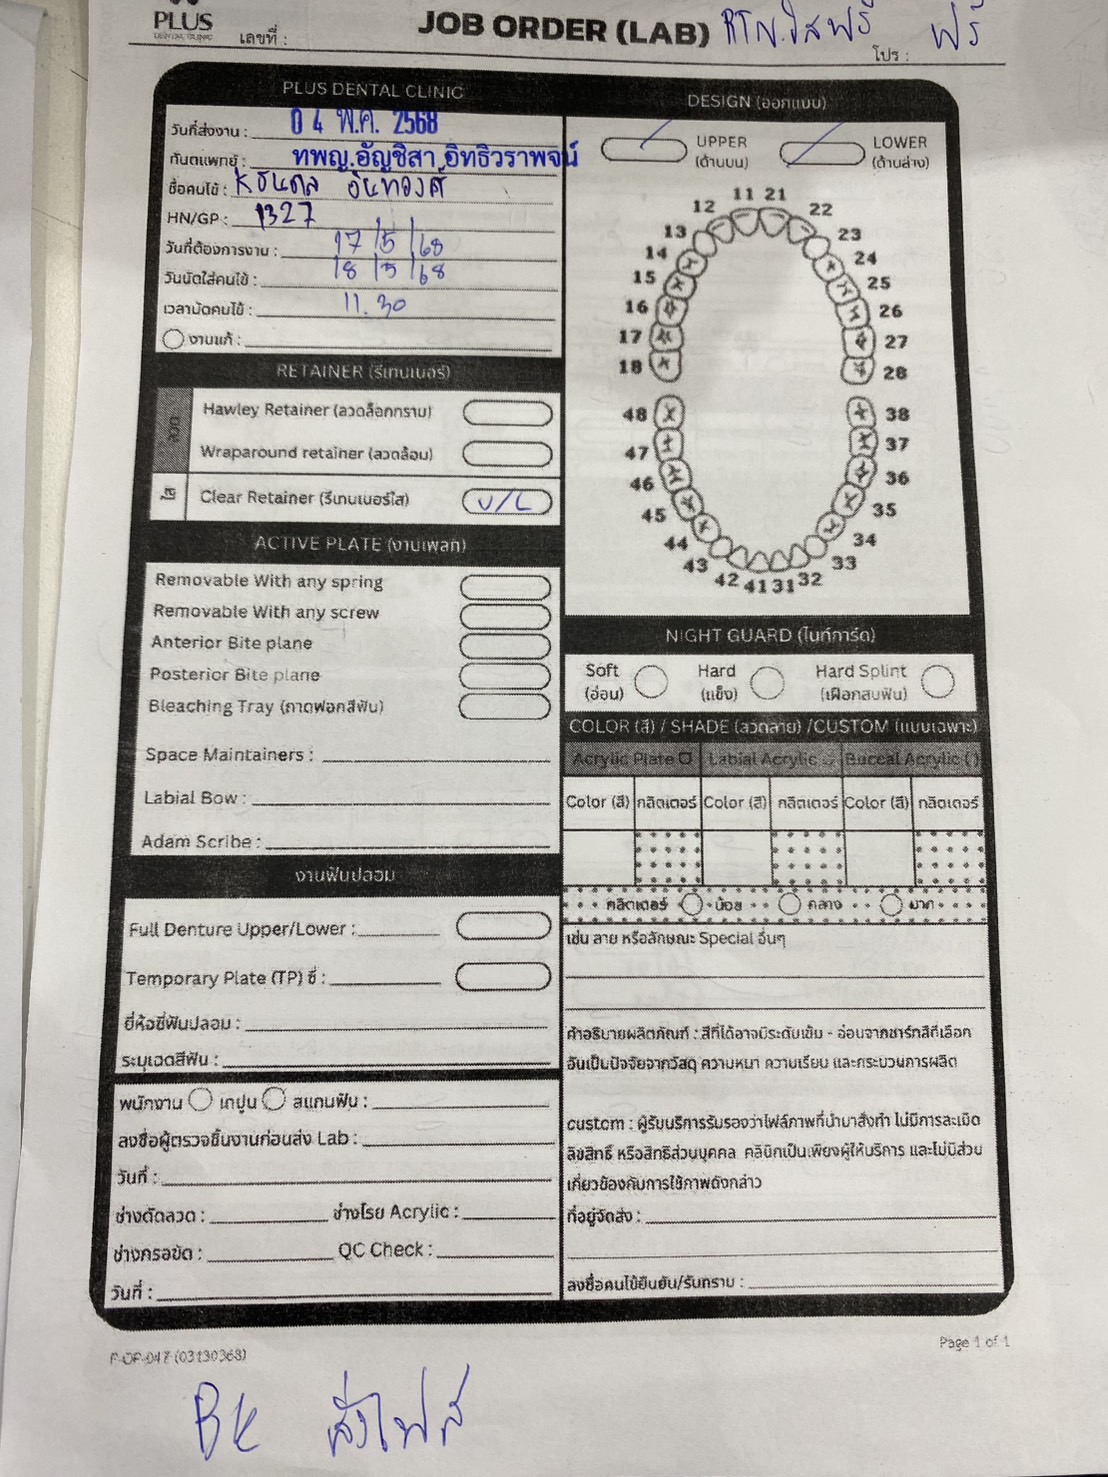 PLUS
DENTAL CLINIC
เลขที่ :
JOB ORDER (LAB) RTN.ใสฟรี
โปร : ฟรี
PLUS DENTAL CLINIC
วันที่ส่งงาน : 0 4 พ.ค. 2568
ทันตแพทย์ : ทพญ.อัญชิสา อิทธิวราพจน์
ชื่อคนไข้ :
HN/GP : 1327
วันที่ต้องการงาน : 17/5/68
วันนัดใส่คนไข้ : 18/5/68
เวลานัดคนไข้ : 11.30
งานแก้ :
RETAINER (รีเทนเนอร์)
ลวด
Hawley Retainer (ลวดล็อกกราม)
Wraparound retainer (ลวดล้อม)
ใส
Clear Retainer (รีเทนเนอร์ใส) U/L
ACTIVE PLATE (งานเพลท)
Removable With any spring
Removable With any screw
Anterior Bite plane
Posterior Bite plane
Bleaching Tray (ถาดฟอกสีฟัน)
Space Maintainers :
Labial Bow :
Adam Scribe :
งานฟันปลอม
Full Denture Upper/Lower :
Temporary Plate (TP) ซี่ :
ยี่ห้อซี่ฟันปลอม :
ระบุเฉดสีฟัน :
พนักงาน เทปูน สแกนฟัน :
ลงชื่อผู้ตรวจชิ้นงานก่อนส่ง Lab :
วันที่ :
ช่างดัดลวด : ช่างโรย Acrylic :
ช่างกรอขัด : QC Check :
วันที่ :
DESIGN (ออกแบบ)
UPPER (ด้านบน)
LOWER (ด้านล่าง)
11 21
12 22
13 23
14 24
15 25
16 26
17 27
18 28
48 38
47 37
46 36
45 35
44 34
43 33
42 41 31 32
NIGHT GUARD (ไนท์การ์ด)
Soft (อ่อน)
Hard (แข็ง)
Hard Splint (เฝือกสบฟัน)
COLOR (สี) / SHADE (ลวดลาย) /CUSTOM (แบบเฉพาะ)
Acrylic Plate Labial Acrylic Buccal Acrylic ( )
Color (สี) กลิตเตอร์ Color (สี) กลิตเตอร์ Color (สี) กลิตเตอร์
กลิตเตอร์ น้อย กลาง มาก
เช่น ลาย หรือลักษณะ Special อื่นๆ
คำอธิบายผลิตภัณฑ์ : สีที่ได้อาจมีระดับเข้ม - อ่อนจากชาร์ทสีที่เลือก
อันเป็นปัจจัยจากวัสดุ ความหนา ความเรียบ และกระบวนการผลิต
custom : ผู้รับบริการรับรองว่าไฟล์ภาพที่นำมาสั่งทำ ไม่มีการละเมิด
ลิขสิทธิ์ หรือสิทธิส่วนบุคคล คลินิกเป็นเพียงผู้ให้บริการ และไม่มีส่วน
เกี่ยวข้องกับการใช้ภาพดังกล่าว
ที่อยู่จัดส่ง :
ลงชื่อคนไข้ยืนยัน/รับทราบ :
F-OP-047 (03130368)
Page 1 of 1
BK ส่งไฟล์